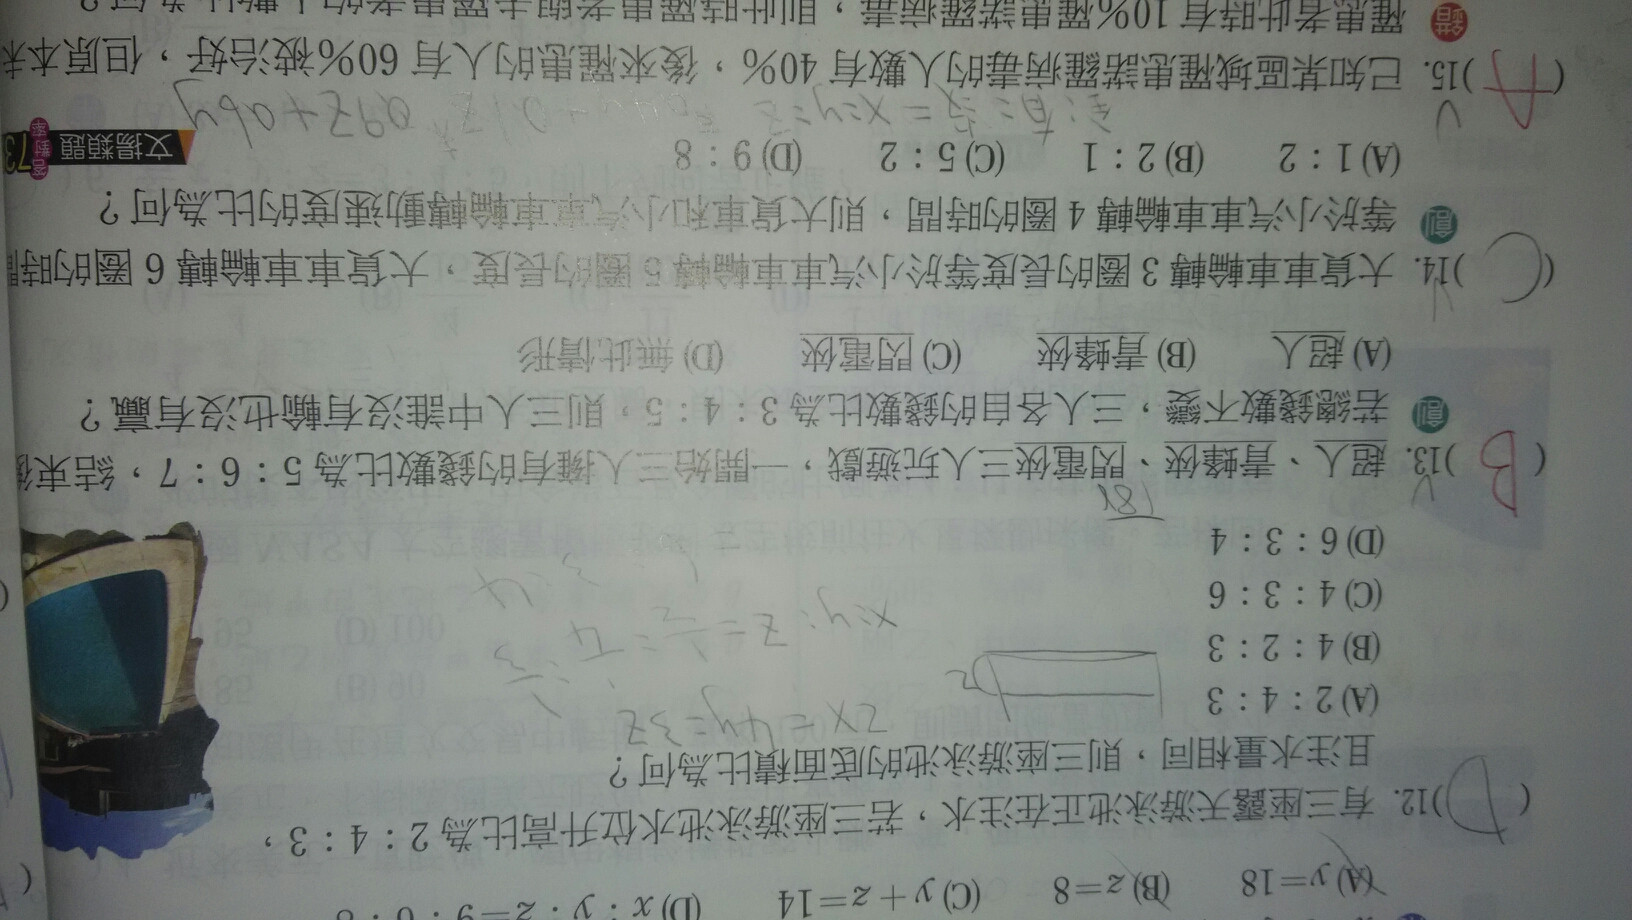 (A) y=18 (B) z=8 (C) y+z=14 (D) x:y:z=9:6:8
( D )12. 有三座露天游泳池正在注水,若三座游泳池水位升高比為 2:4:3,
且注水量相同,則三座游泳池的底面積比為何?
2x=4y=3z
(A) 2:4:3
(B) 4:2:3
x:y:z=1/2:1/4:1/3
(C) 4:3:6
(D) 6:3:4
18r
( B )13. 超人、青蜂俠、閃電俠三人玩遊戲,一開始三人擁有的錢數比為 5:6:7,結束後
創 若總錢數不變,三人各自的錢數比為 3:4:5,則三人中誰沒有輸也沒有贏?
(A) 超人 (B) 青蜂俠 (C) 閃電俠 (D) 無此情形
( C )14. 大貨車車輪轉 3 圈的長度等於小汽車車輪轉 5 圈的長度,大貨車車輪轉 6 圈的時間
創 等於小汽車車輪轉 4 圈的時間,則大貨車和小汽車車輪轉動速度的比為何?
(A) 1:2 (B) 2:1 (C) 5:2 (D) 9:8
文揚類題 答對率 73
( A )15. 已知某區域罹患諾羅病毒的人數有 40%,後來罹患的人有 60%被治好,但原本未
罹患者此時有 10%罹患諾羅病毒,則此時罹患者與未罹患者的人數比為何?